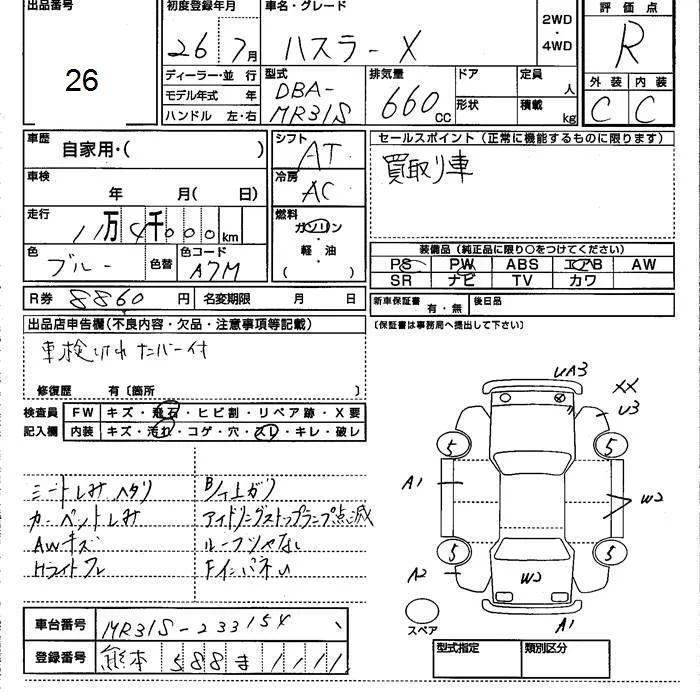 出品番号
26
初度登録年月
26 7月
車名・グレード
ハスラーX
2WD
・
4WD
評価点
R
ディーラー・並 行
モデル年式 年
ハンドル 左・右
型式
DBA-
MR31S
排気量
660cc
ドア
形状
定員
人
積載
kg
外装 内装
C C
車歴
自家用・( )
シフト
AT
セールスポイント(正常に機能するものに限ります)
買取り車
車検
年 月( 日)
冷房
AC
走行
11万4千000km
燃料
ガソリン
・
軽・油
( )
色
ブルー
色替
色コード
A7M
装備品(純正品に限り○をつけてください)
PS PW ABS エアB AW
SR ナビ TV カワ
R券 8860円
名変期限 月 日
新車保証書 有・無
後日品
(保証書は事務局へ提出して下さい)
出品店申告欄(不良内容・欠品・注意事項等記載)
車検切れ ナンバー付
修復歴 有〔箇所 〕
検査員
記入欄
FW キズ・飛石・ヒビ割・リペア跡・X要
内装 キズ・汚れ・コゲ・穴・スレ・キレ・破れ
シートしみ ヘタリ
カーペットしみ
AWキズ
アイドリングストップランプ点滅
UA3
XX
U3
A1
W2
A2
W2
A1
5
5
5
5
スペア
車台番号 MR31S-233154
登録番号 熊本 588 ま 1111
型式指定
類別区分